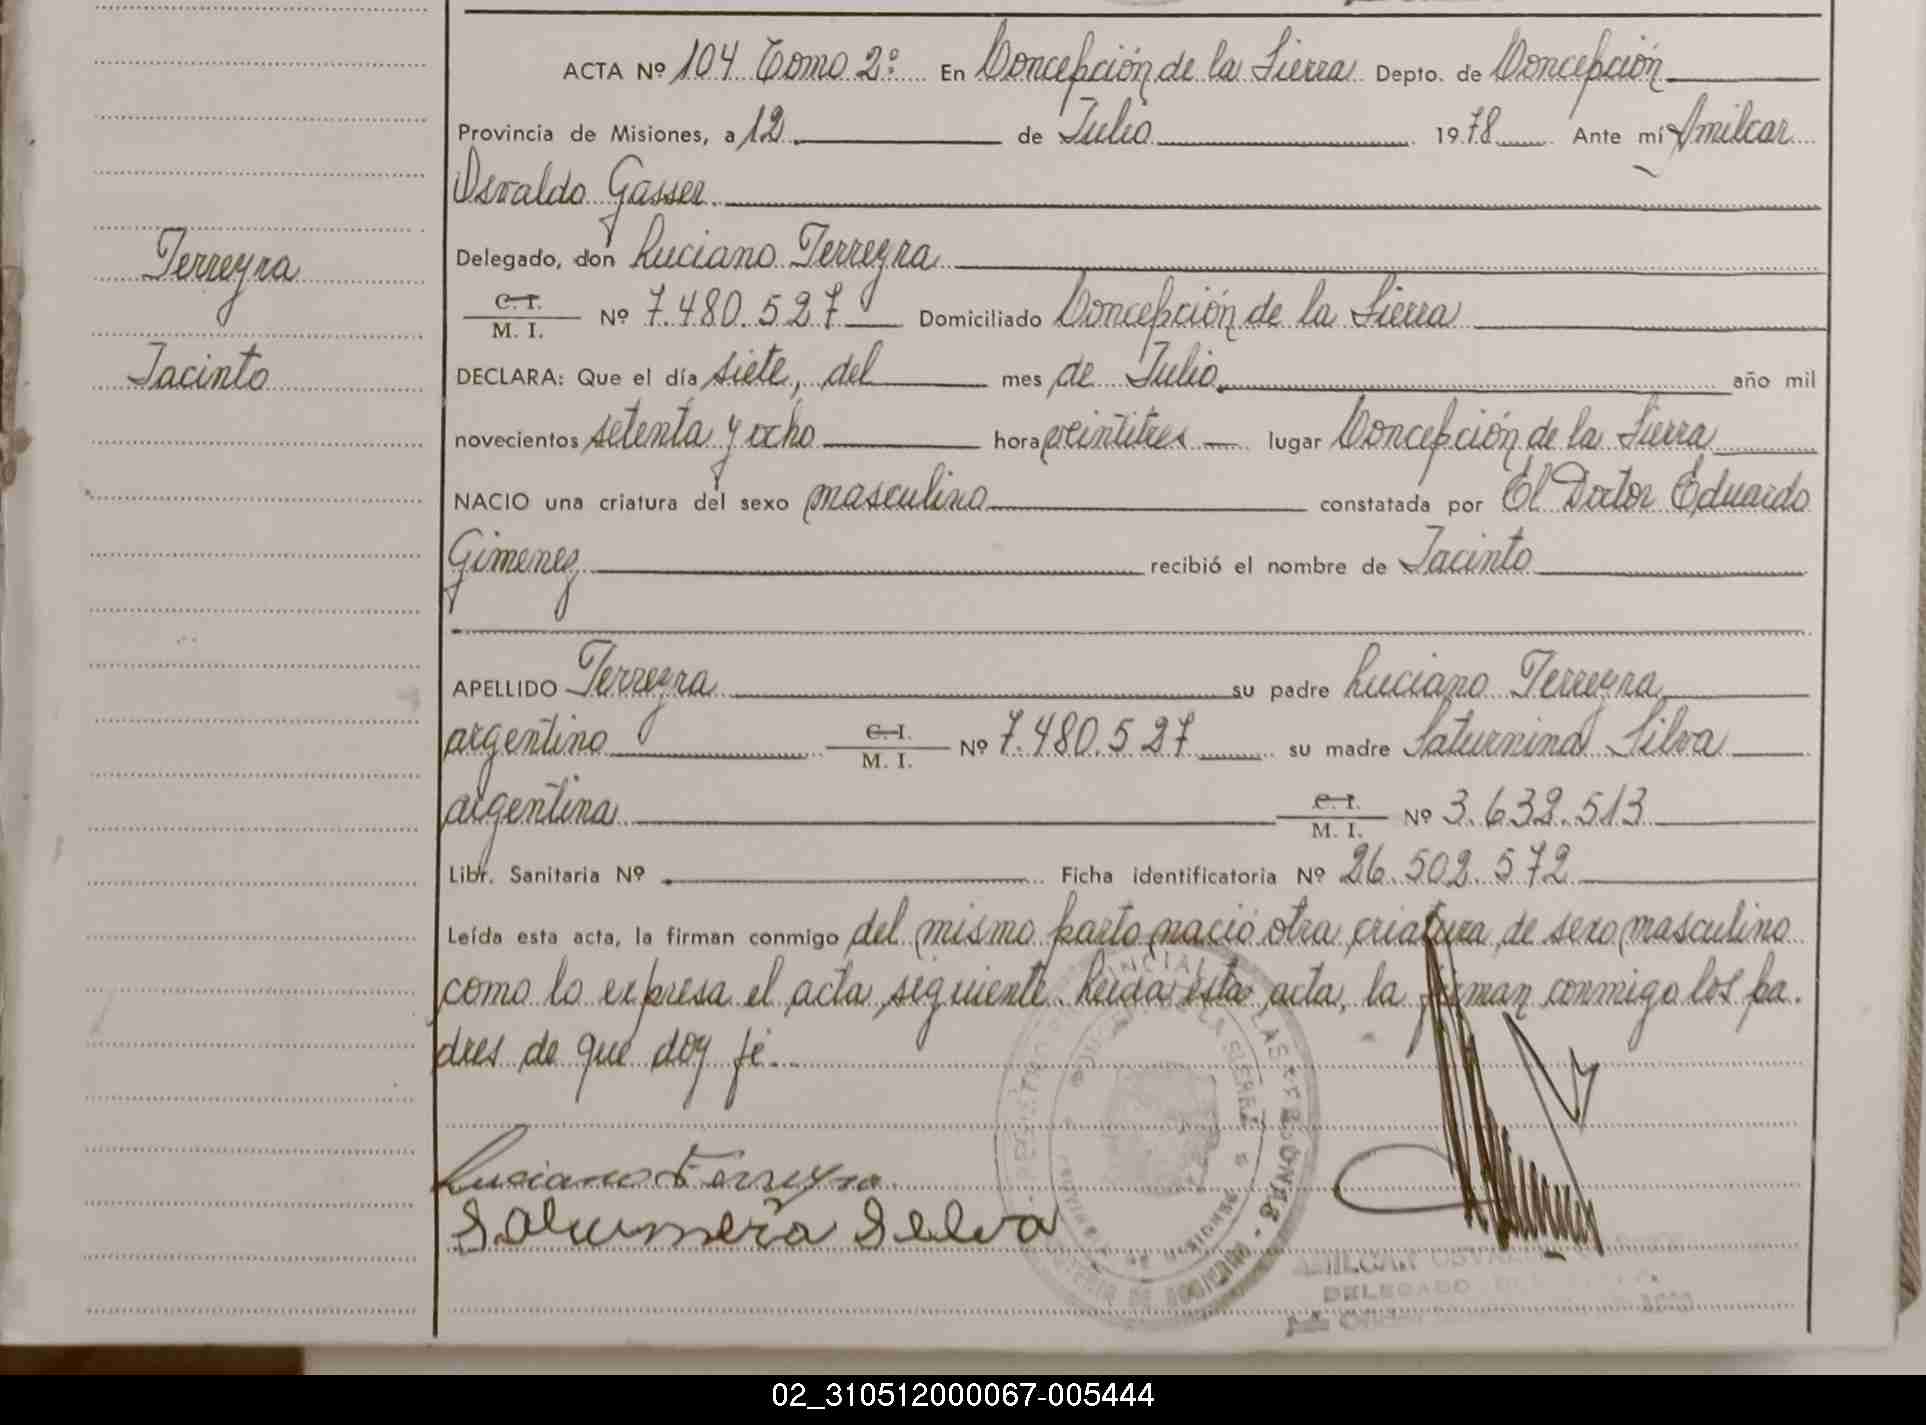 ACTA Nº 104 Tomo 2º En Concepción de la Sierra Depto. de Concepción
Provincia de Misiones, a 12 de Julio 1978 Ante mí Amilcar
Osvaldo Gasser
Delegado, don Luciano Ferreyra
Ferreyra
C. I. M. I. Nº 7.480.527 Domiciliado Concepción de la Sierra
Jacinto
DECLARA: Que el día siete, del mes de Julio año mil
novecientos setenta y ocho hora veintitres lugar Concepción de la Sierra
NACIO una criatura del sexo masculino constatada por El Doctor Eduardo
Gimenez recibió el nombre de Jacinto
APELLIDO Ferreyra su padre Luciano Ferreyra
argentino C. I. M. I. Nº 7.480.527 su madre Saturnina Silva
argentina C. I. M. I. Nº 3.632.513
Libr. Sanitaria Nº Ficha identificatoria Nº 26.502.572
Leída esta acta, la firman conmigo del mismo parto nació otra criatura de sexo masculino
como lo expresa el acta siguiente. Leida esta acta, la firman conmigo los pa.
dres de que doy fé.
Luciano Ferreyra
Selva
DELEGADO
02_310512000067-005444